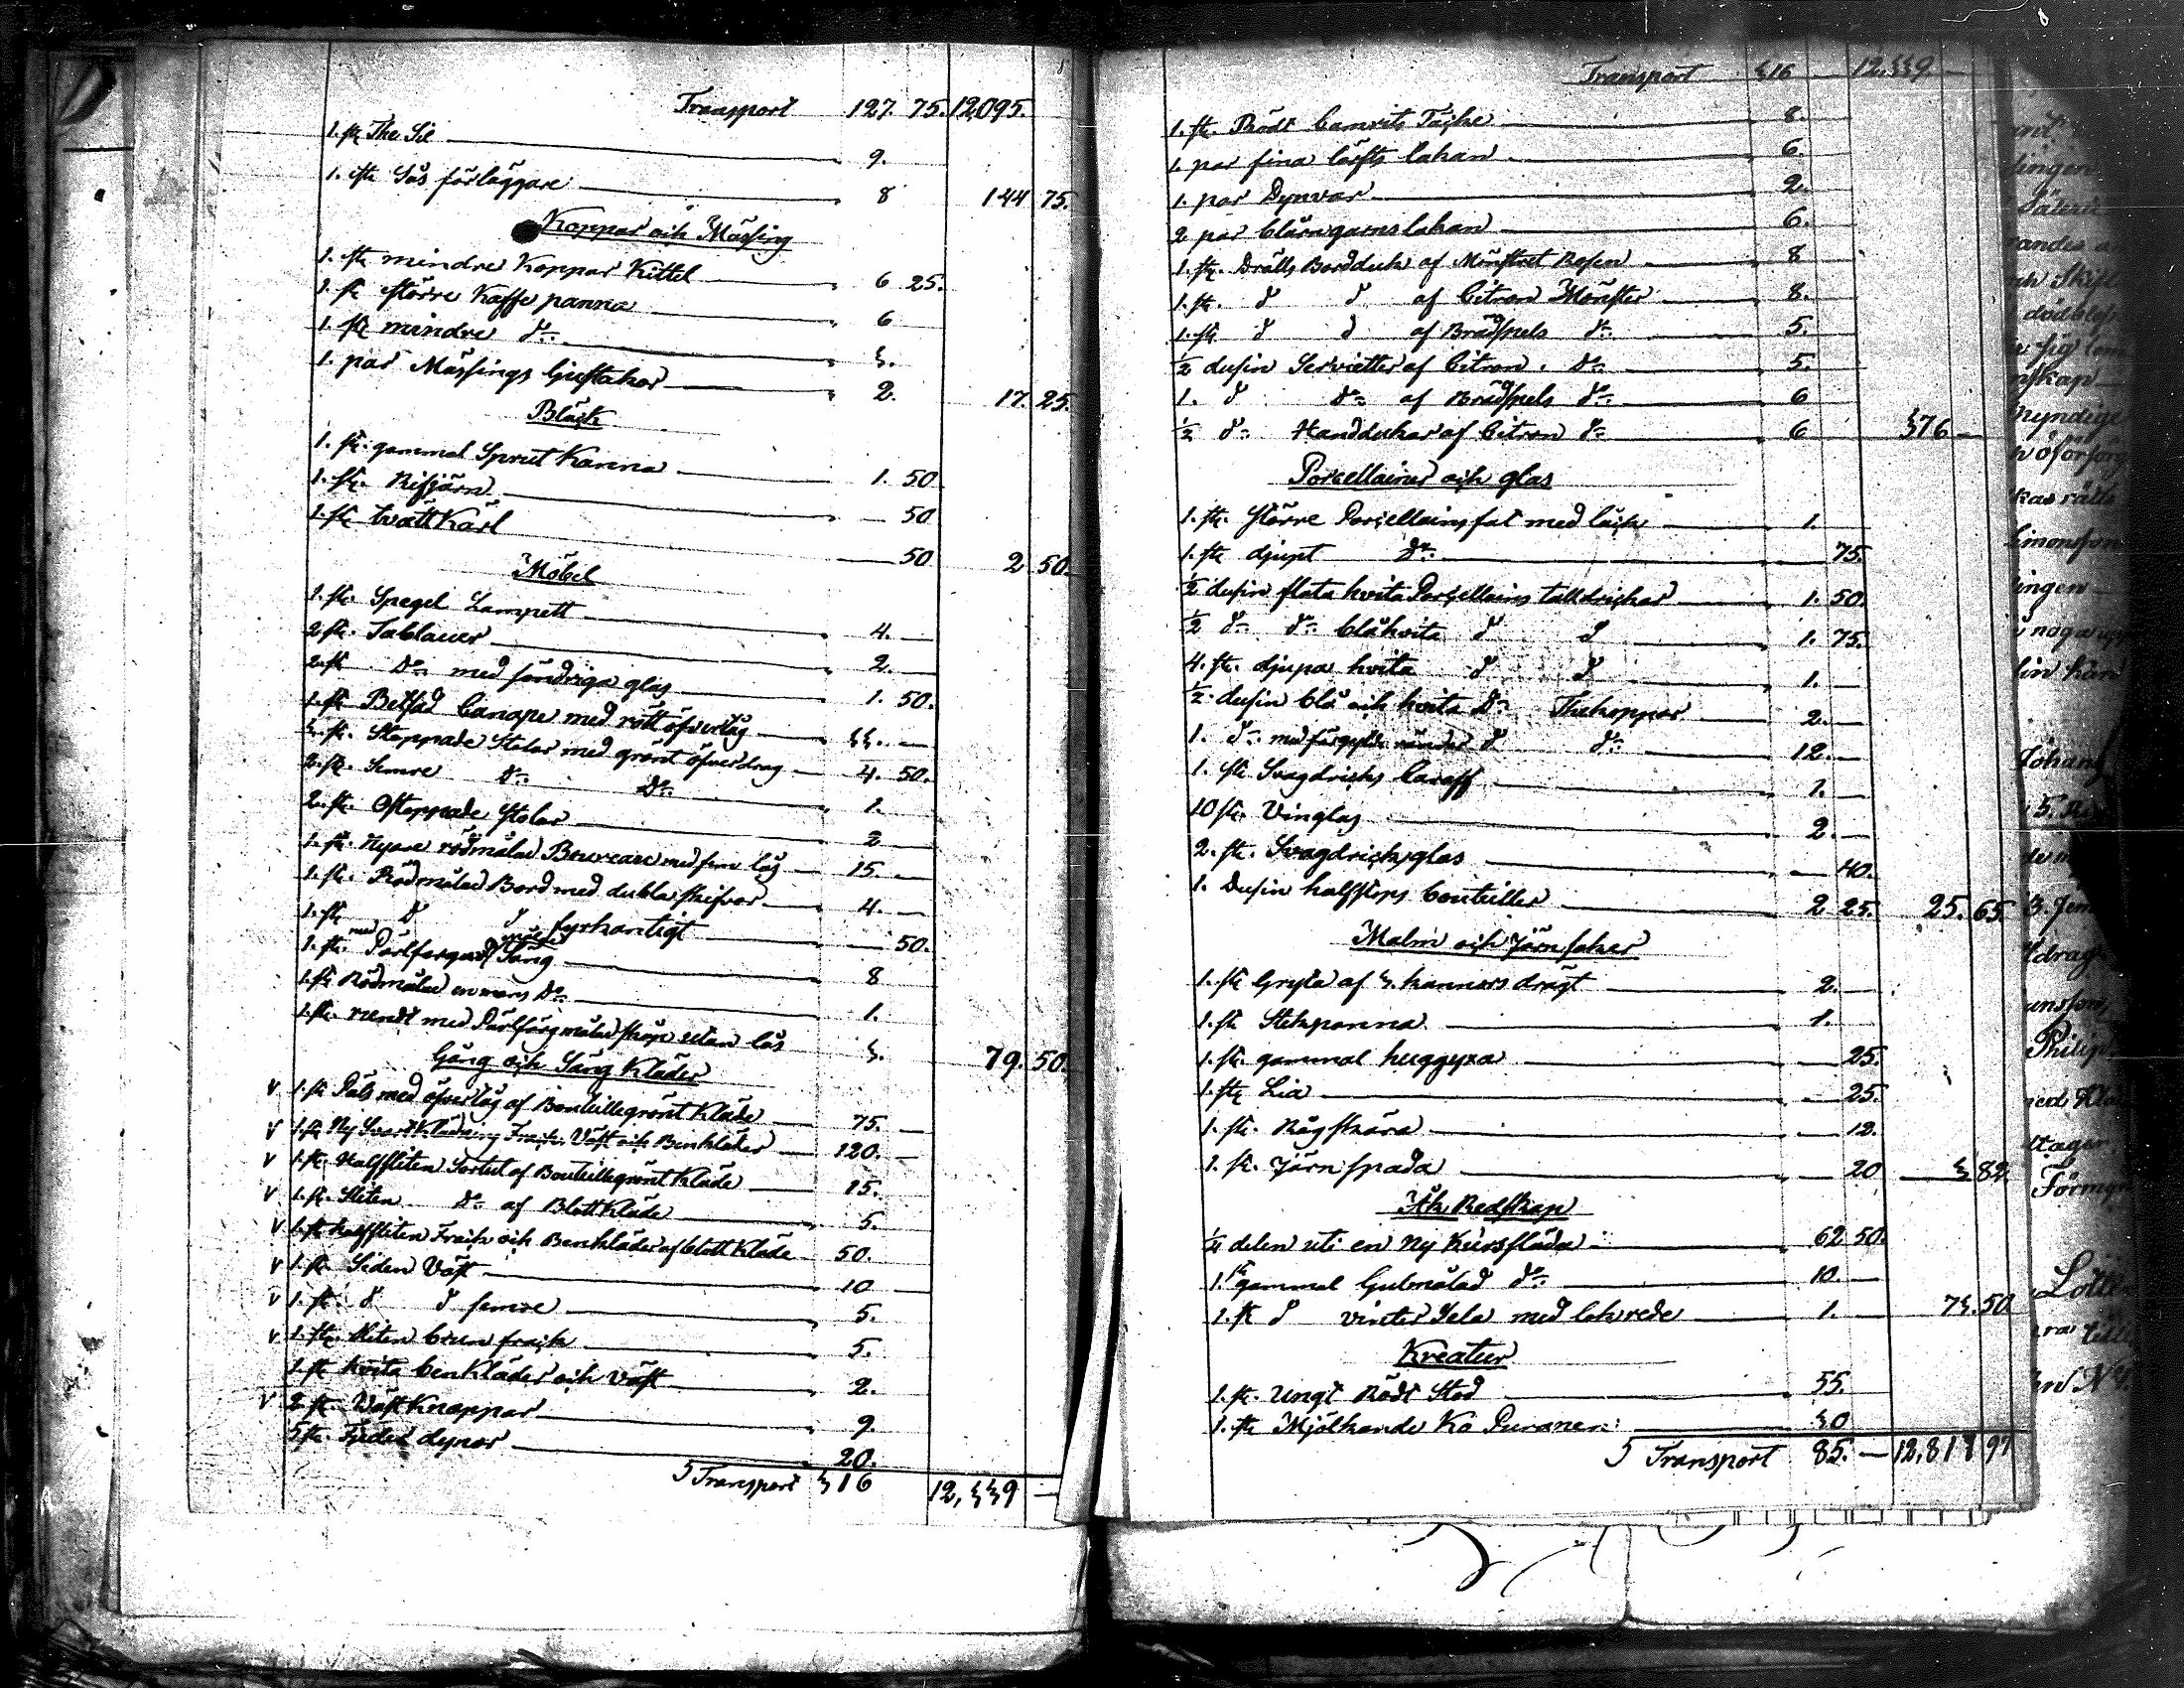 Transport 127. 75. 12,095.
1. st. The Sil 9.
1. st. Sås förläggare 8 144 75.
Koppar och Mässing
1. st. mindre Koppar Kittel 6 25.
1. st. större Kaffe panna 6
1. st. mindre do 3.
1. par Mässings ljustakar 2. 17. 25.
Bläck
1. st. gammal Sprut Kanna 1. 50
1. st. Rifjärn 50
1. st. tvätt Kärl 50 2 50.
Möbel
1. st. Spegel Lampett 4.
2 st. Tablauer 2.
2 st. Do med söndriga glas 1. 50.
1. st. Canape med rött öfverlåg 33.
3. st. Stoppade Stolar med grönt öfverdrag 4. 50.
2. st. Semre do Do 1.
2. st. Ostoppade stolar 2
1. st. Nyare rödmålad Beureau med fem lås 15.
1. st. Rödmålad Bord med dubla skifvor 4.
1. st. d d fyrkantigt 50.
1. st. med Pärlfärg målad Säng 8
1. st. Rödmålad enmans Do 1.
1. st. rundt med Pärlfärg målad skåp utan lås 3. 79. 50.
Gång och Säng Kläder
v 1. st. Päls med öfverlåg af Bouteillegrönt Kläde 75.
v 1. st. Ny Svart Klädning Frack, Väst och Benkläder 120.
v 1. st. Halfsliten Sortut af Bouteillegrönt Kläde 15.
v 1. st. Sliten Do af Blått Kläde 5.
v 1. st. halfsliten Frack och Benkläder af blått Kläde 50.
v 1. st. Siden Väst 10
v 1. st. d d semre 5.
v 1. st. sliten brun frack 5.
1. st. hvita benkläder och väst 2.
v 2 st. Väst Knappar 9.
5 st. Fjeder dynor 20.
Transport 316 12,339

Transport 316 12,339
1. st. Rödt Camrits Täcke 8.
1. par fina lärfts lakan 6.
1. par Dynvar 2.
2 par blårngarns lakan 6.
1. st. Drälls Bordduk af Mönstret Rosen 8
1. st. d d af Citron Mönster 8.
1. st. d d af Brädspels do 5.
1/2 dusin Servietter af Citron. do 5.
1. d do af Brädspels do 6
1/2 do Handdukar af Citron do 6 376
Porcellainer och glas
1. st. större Porcellains fat med läck 1.
1. st. djupt Do 75.
1/2 dusin flata hvita Porcellains talldrickar 1. 50.
1/2 do do blåhvita d d 1. 75.
4. st. djupa hvita d d 1.
1/2 dusin blå och hvita Do Thekoppar 2.
1. do med förgylda ränder d do 12.
1. st. Svagdricks Caraff 1.
10 st. Vinglas 2.
2. st. Svagdricksglas 40.
1. Dusin halfstops bouteiller 2 25. 25. 65
Malm och Järnsaker
1. st. Gryta af 3. kannors drägt 2.
1. st. Stekpanna 1.
1. st. gammal huggyxa 25.
1. st. Lia 25.
1. st. Rågskära 12.
1. st. Järnspada 20 3 82.
Åk Redskap
1/4 delen uti en Ny Kursslåda 62 50.
1. st. gammal Gulmålad do 10.
1. st. d vinter Sela med lokrede 1. 73. 50
Kreatur
1. st. Ungt Rödt Stod 55.
1. st. Mjölkande Ko Puranen 30
Transport 85. 12,817 97